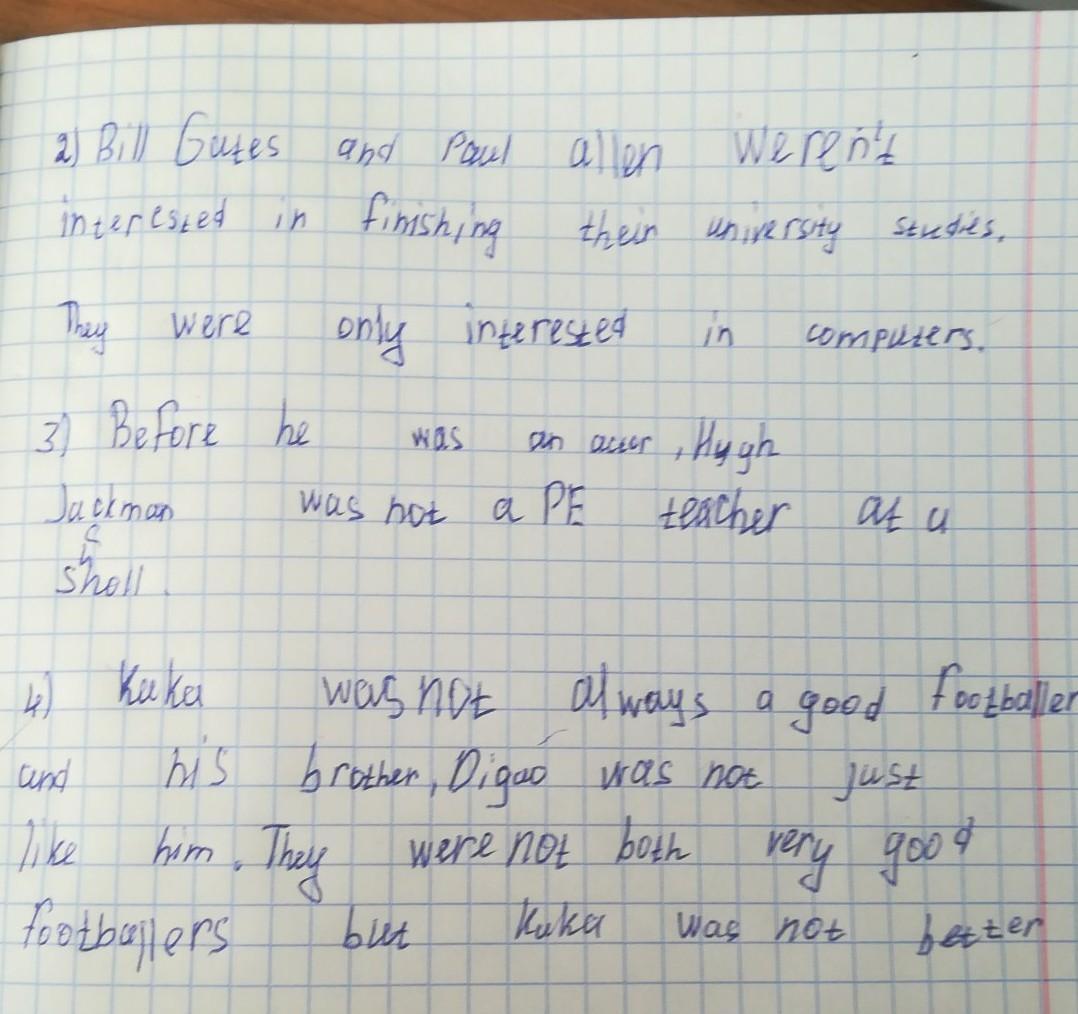 2) Bill Gates and Paul allen weren't
interested in finishing their university studies.
They were only interested in computers.
3) Before he was an actor, Hygh
Jackman was not a PE teacher at a
sholl.
4) Kaka was not always a good footballer
and his brother, Digao was not just
like him. They were not both very good
footballers but Kaka was not better